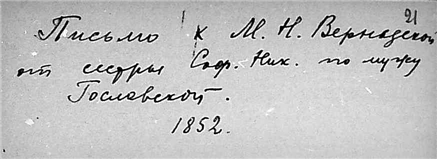 21
Письмо к М. Н. Вернадской
от сестры Соф. Ник. по мужу
Гославской.
1852.